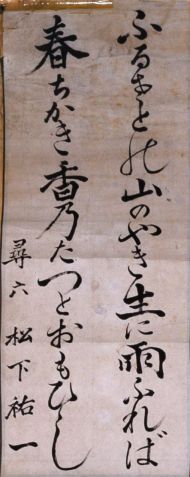 ふるさとの山のやき生に雨ふれば
春ちかき香乃たつとおもひし
尋六 松下祐一